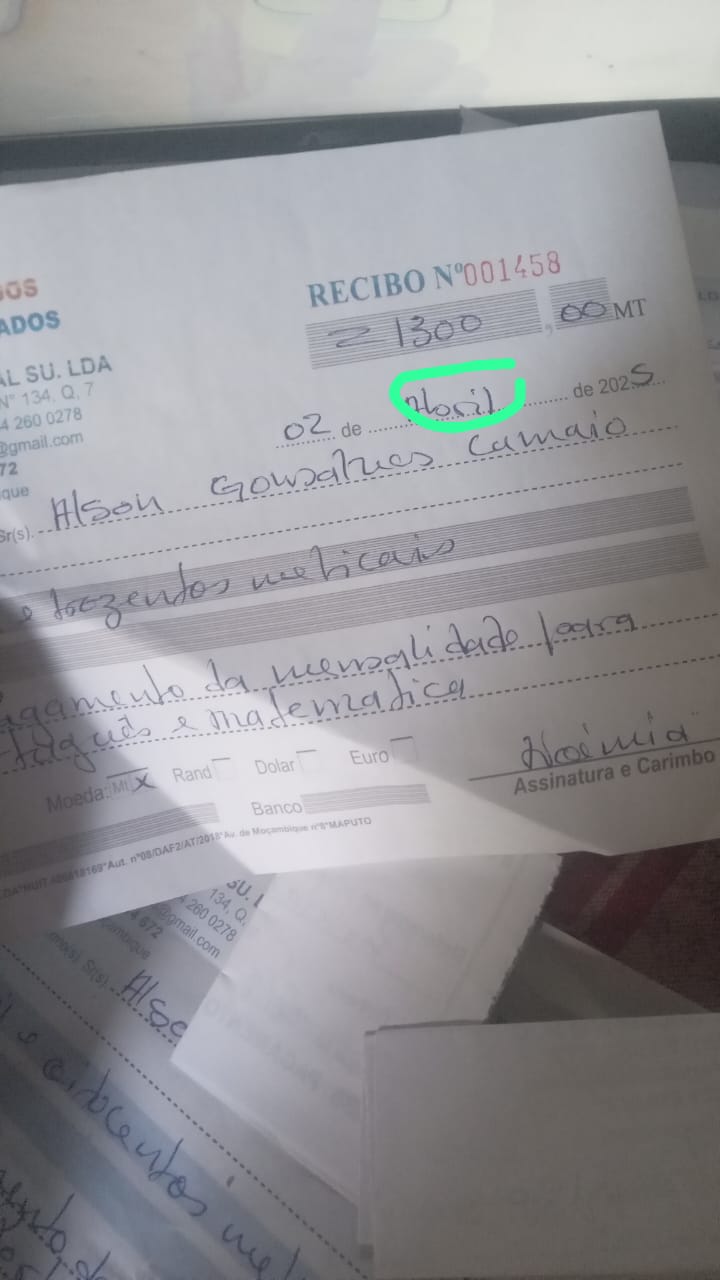 OS
ADOS
AL SU. LDA
Nº 134, Q, 7
4 260 0278
@gmail.com
72
que
RECIBO Nº 001458
= 1300,00 MT
02 de Abril de 2025
Sr(s). Alson Gonsalves Camaio
e trezentos meticais
agamento da mensalidade para
tuguês e matematica
Moeda: Mt X Rand Dolar Euro
Banco
Noémia
Assinatura e Carimbo
Aut. nº08/DAF2/AT/2018*Av. de Moçambique nº8*MAPUTO
SU. L
134, Q,
4 260 0278
@gmail.com
4 672
ambique
Sr(s). Also
e